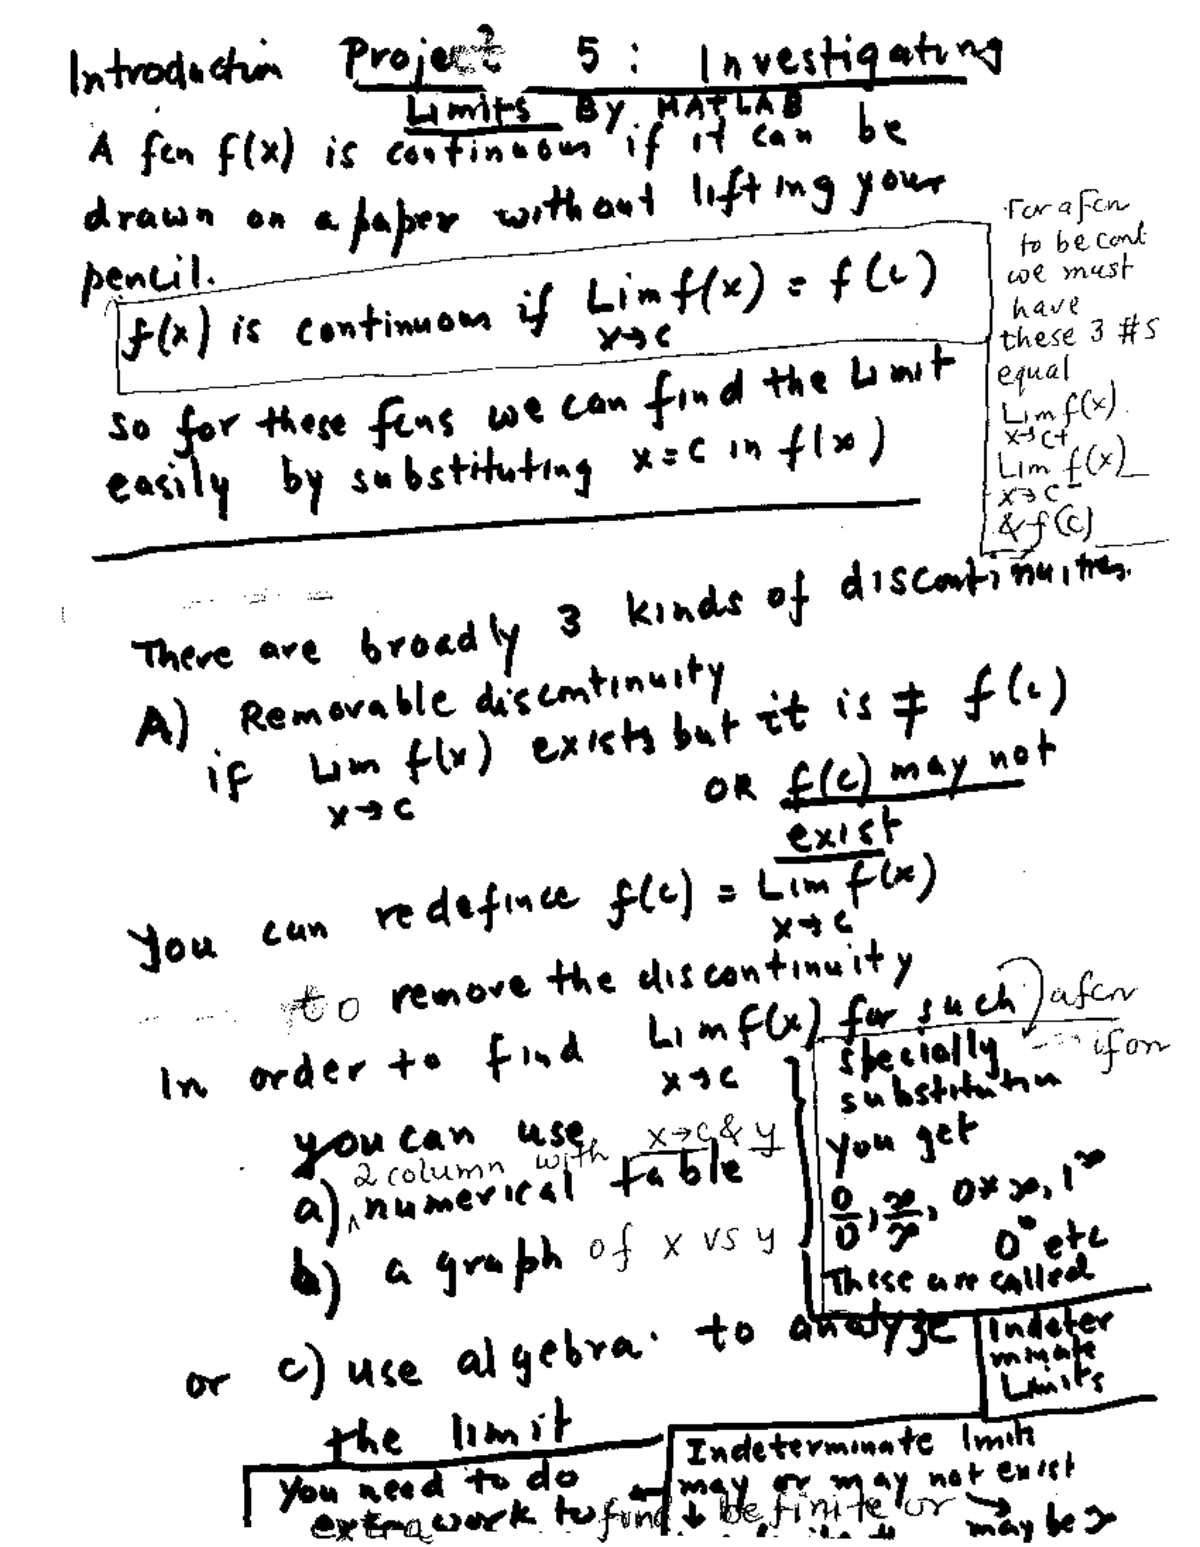 Introduction Project 5 : Investigating
Limits By MATLAB
A fcn f(x) is continuous if it can be
drawn on a paper without lifting your
pencil.
f(x) is continuous if Lim f(x) = f(c)
x→c
so for these fcns we can find the Limit
easily by substituting x=c in f(x)
For a fcn
to be cont
we must
have
these 3 #s
equal
Lim f(x)
x→c+
Lim f(x)
x→c−
& f(c)
There are broadly 3 kinds of discontinuities.
A) Removable discontinuity
if Lim f(x) exists but it is ≠ f(c)
x→c
OR f(c) may not
exist
You can redefince f(c) = Lim f(x)
x→c
to remove the discontinuity
In order to find Lim f(x) for such a fcn
x→c
specially if on
substitution
you get
0/0, ∞/∞, 0*∞, 1^∞
0^0 etc
These are called
Indeter
minate
Limits
you can use
2 column with x→c & y
a) numerical table
b) a graph of x vs y
or c) use algebra to analyze
the limit
You need to do
extra work to find
Indeterminate limits
may or may not exist
be finite or
may be ∞